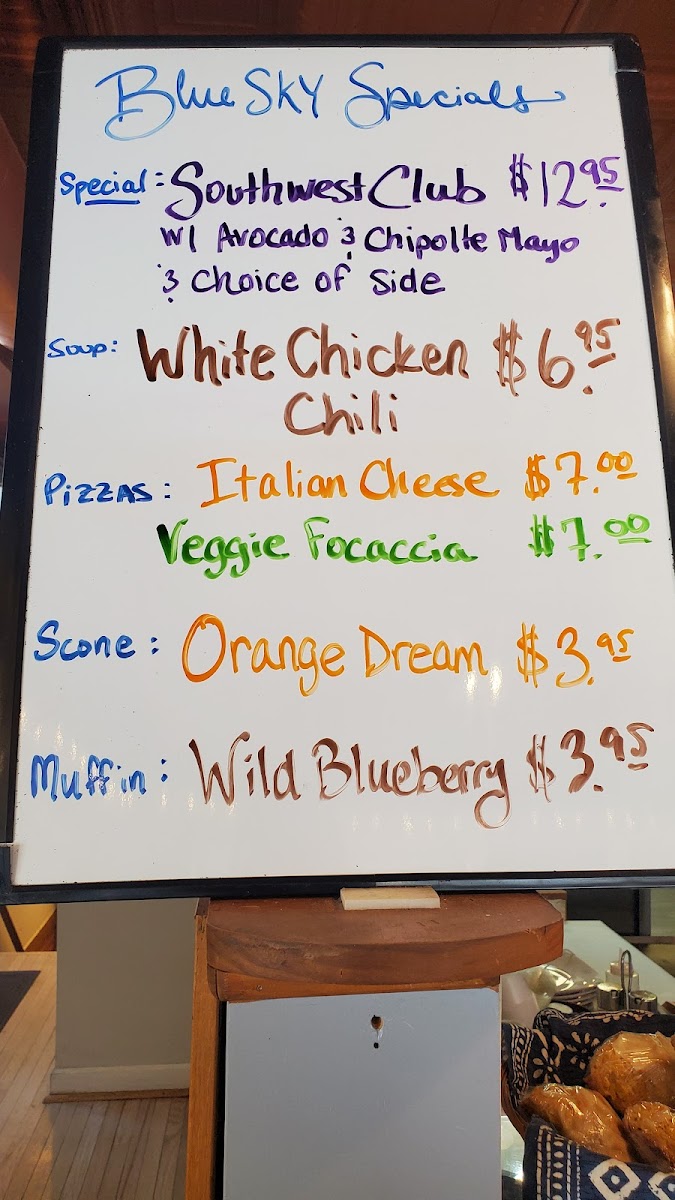 Blue SKY Specials
Special: Southwest Club $12.95
w/ Avocado & Chipolte Mayo
& Choice of Side
Soup: White Chicken $6.95
Chili
PIZZAS: Italian Cheese $7.00
Veggie Focaccia $7.00
Scone: Orange Dream $3.95
Muffin: Wild Blueberry $3.95